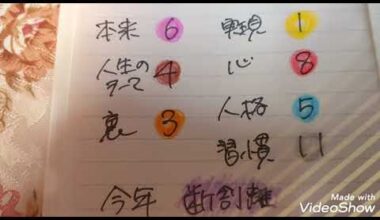 本来 6
1
人生の
テーマ 4
心 8
裏 3
人格 5
習慣 11
今年
Made with
VideoShow